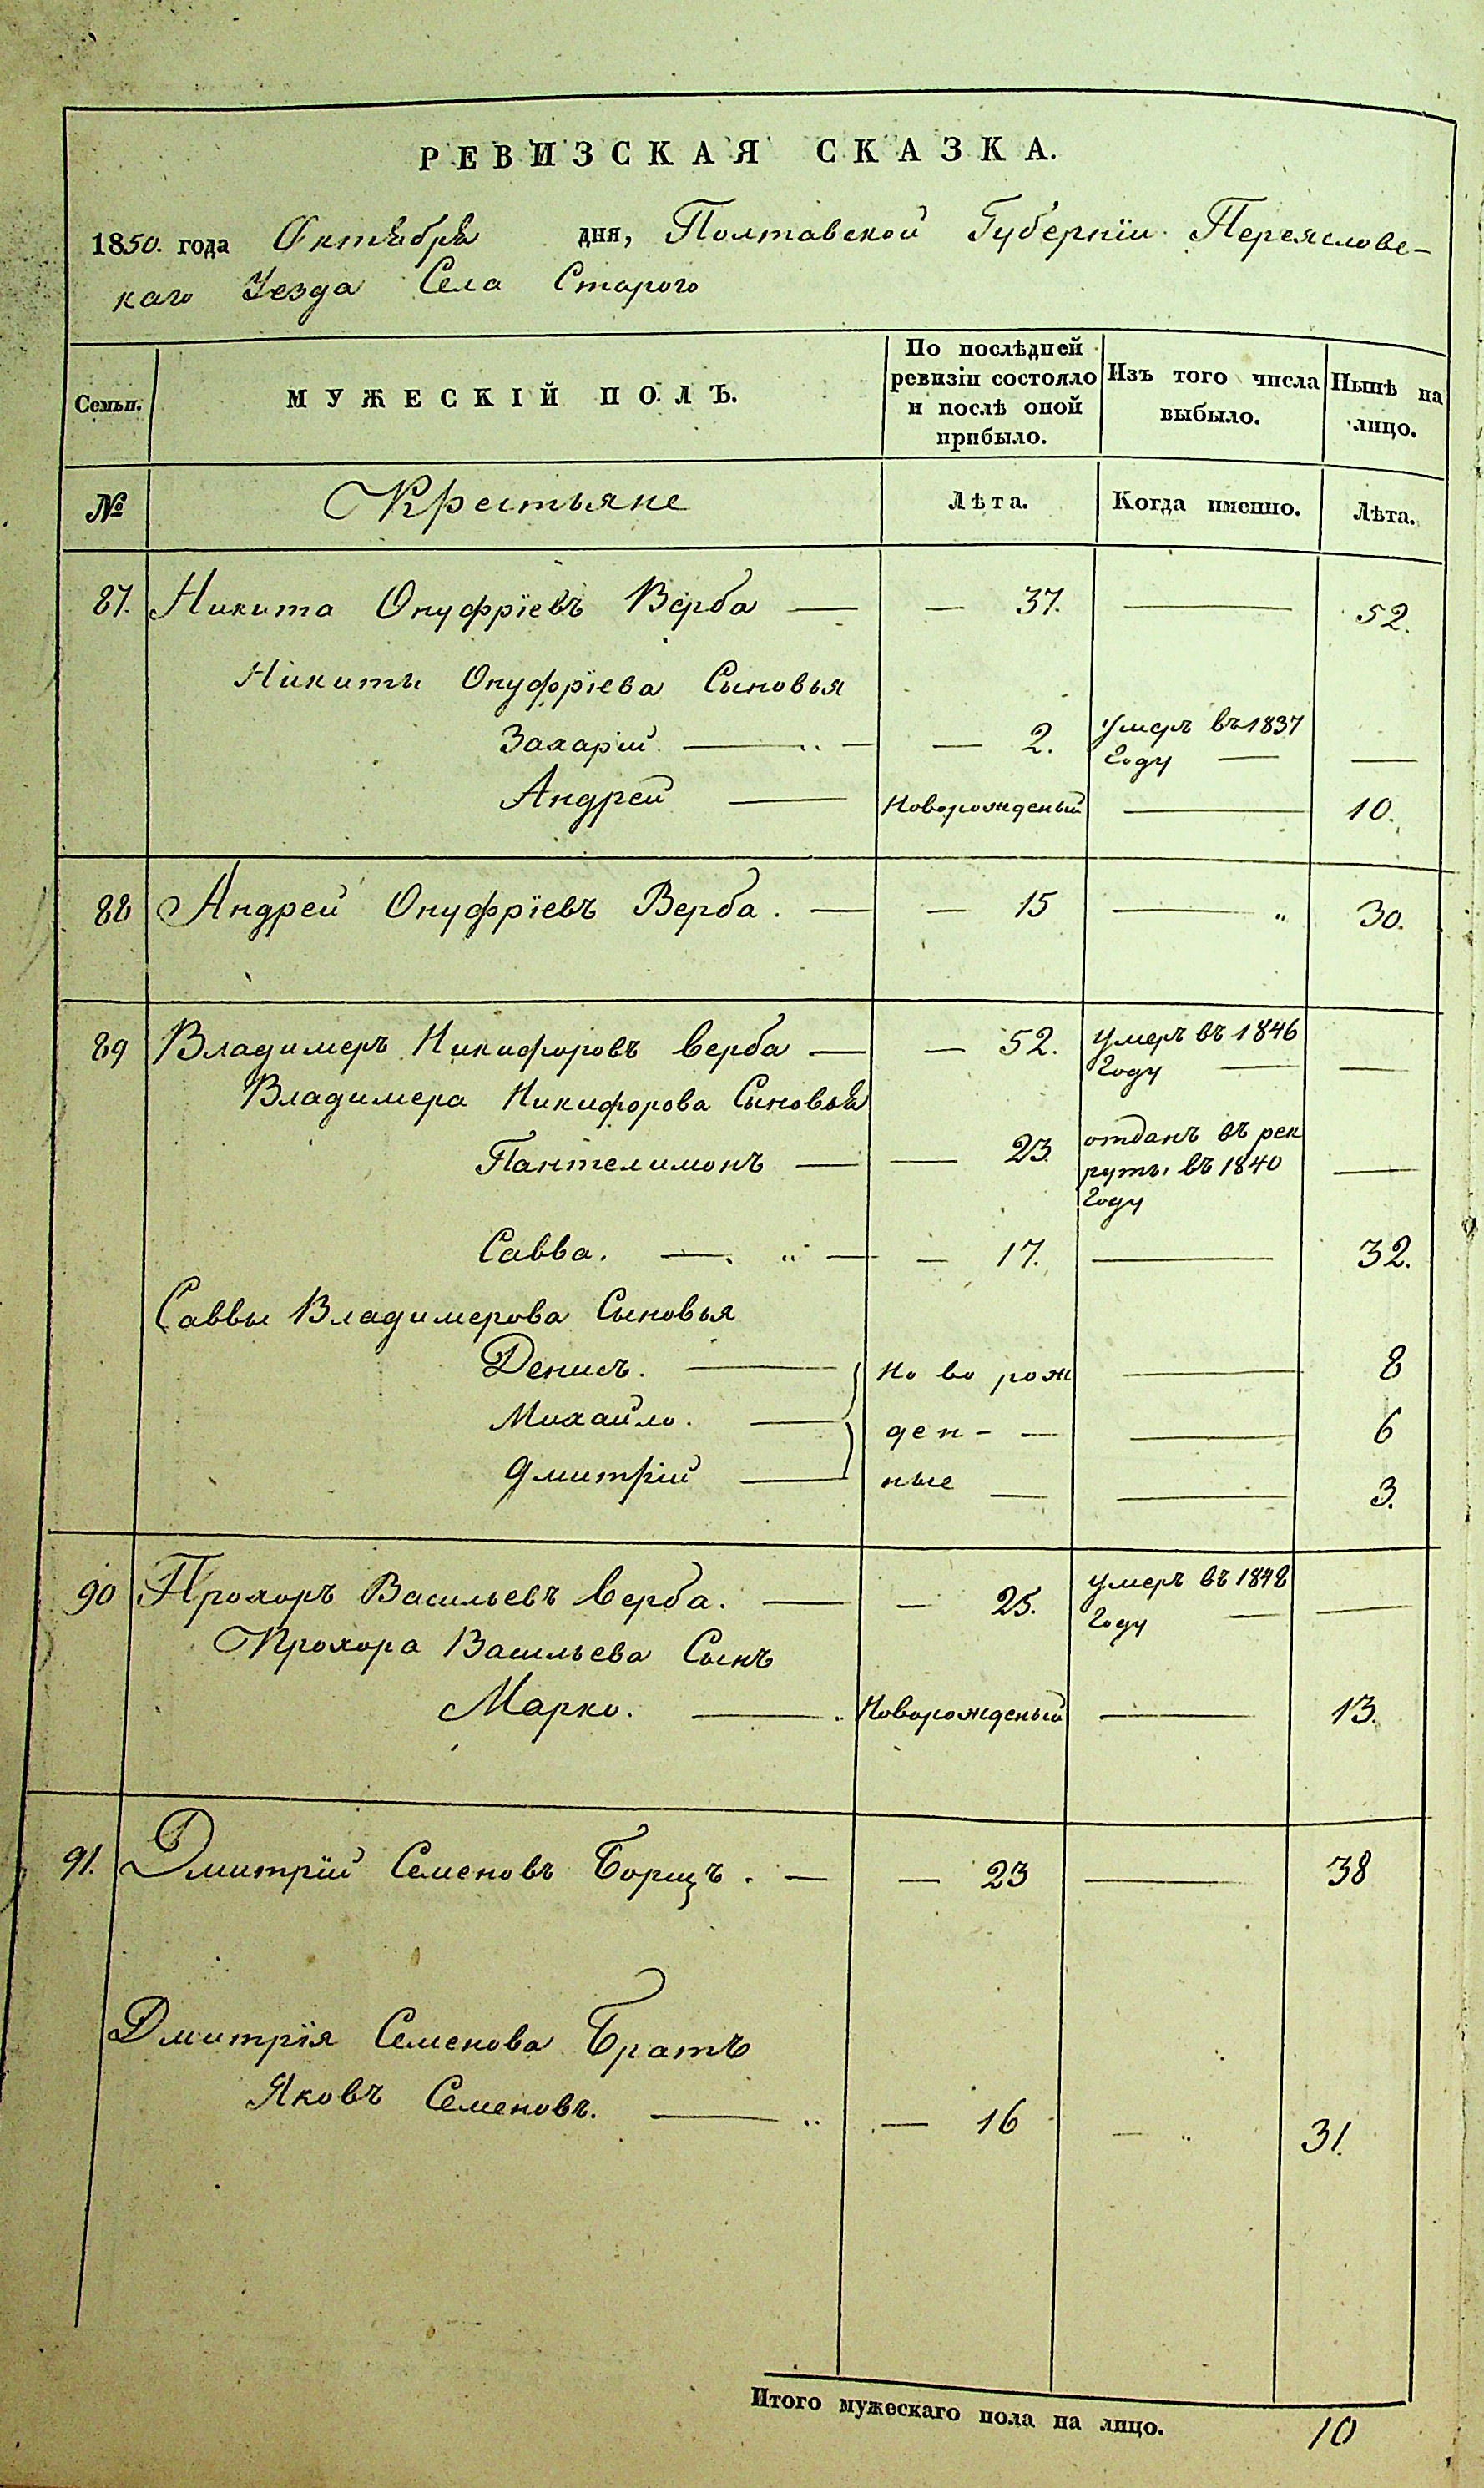 РЕВИЗСКАЯ СКАЗКА.
1850. года Октября дня, Полтавской Губернїи Переяслове-
каго Уезда Села Старого
Семьи. МУЖЕСКІЙ ПОЛЪ. По послѣдней ревизіи состояло и послѣ оной прибыло. Изъ того числа выбыло. Нынѣ на лицо.
№ Крестьяне Лѣта. Когда именно. Лѣта.
87. Никита Онуфрїевъ Верба — — 37. — 52.
Никиты Онуфрїева Сыновья
Захарій — — 2. Умеръ въ 1837 году — —
Андрей — Новорожденый — 10.
88 Андрей Онуфрїевъ Верба. — — 15 — " 30.
89 Владимеръ Никифоровъ Верба — — 52. умеръ въ 1846 году — —
Владимера Никифорова Сыновья
Пантелимонъ — — 23. отданъ въ рек руты въ 1840 году —
Савва. — " — — 17. — 32.
Саввы Владимерова Сыновья
Денисъ. — Но во рож — 8
Михайло. — ден- — — 6
Дмитрій — ные — — 3.
90 Прохоръ Васильевъ Верба. — — 25. умеръ въ 1848 году — —
Прохора Васильева Сынъ
Марко. — Новорожденый — 13.
91. Дмитрїй Семеновъ Борщъ. — — 23 — 38
Дмитрїя Семенова Братъ
Яковъ Семеновъ. — " — 16 — " 31.
Итого мужескаго пола на лицо. 10